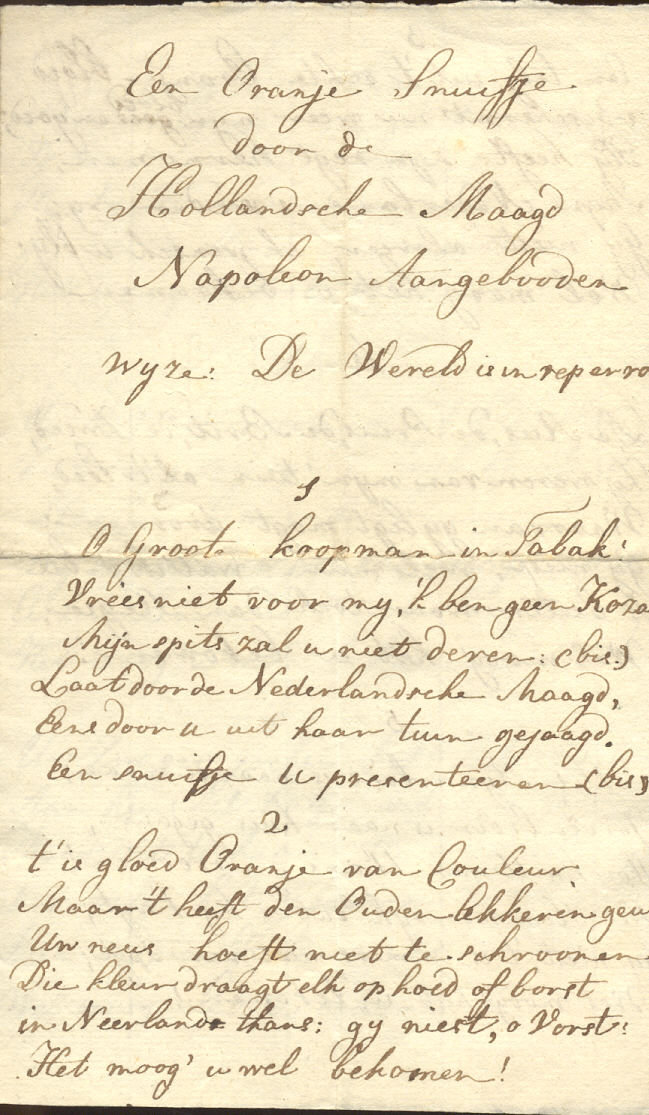 Een Oranje Snuifje
door de
Hollandsche Maagd
Napoleon Aangebooden
wyze: De Wereld is in reperro
1
O Groote koopman in Tabak!
Vrees niet voor my, 'k ben geen Koza
Mijn spits zal u niet deren: (bis.)
Laat door de Nederlandsche Maagd,
Eens door u uit haar tuin gejaagd.
Een snuifje u presenteeren (bis)
2
t' is gloed Oranje van Couleur
Maar 't heeft den Ouden lekkeren geu
Uw neus hoeft niet te schroomen
Die kleur draagt elk op hoed of borst
in Neerlands thans: gy niest, o Vorst:
Het moog' u wel bekomen!